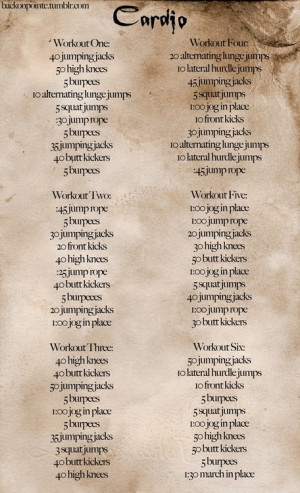 backonpointe.tumblr.com
Cardio
Workout One:
40 jumping jacks
50 high knees
5 burpees
10 alternating lunge jumps
5 squat jumps
:30 jump rope
5 burpees
35 jumping jacks
40 butt kickers
5 burpees
Workout Two:
:45 jump rope
5 burpees
30 jumping jacks
20 front kicks
40 high knees
:25 jump rope
40 butt kickers
5 burpees
20 jumping jacks
1:00 jog in place
Workout Three:
40 high knees
40 butt kickers
50 jumping jacks
5 burpees
1:00 jog in place
5 burpees
35 jumping jacks
3 squat jumps
40 butt kickers
40 high knees
Workout Four:
20 alternating lunge jumps
10 lateral hurdle jumps
45 jumping jacks
5 squat jumps
1:00 jog in place
10 front kicks
30 jumping jacks
10 alternating lunge jumps
10 lateral hurdle jumps
:45 jump rope
Workout Five:
1:00 jog in place
1:00 jump rope
20 jumping jacks
30 high knees
50 butt kickers
1:00 jog in place
5 squat jumps
40 jumping jacks
1:00 jump rope
30 butt kickers
Workout Six:
50 jumping jacks
10 lateral hurdle jumps
10 front kicks
5 burpees
5 squat jumps
1:00 jog in place
50 high knees
50 butt kickers
5 burpees
1:30 march in place